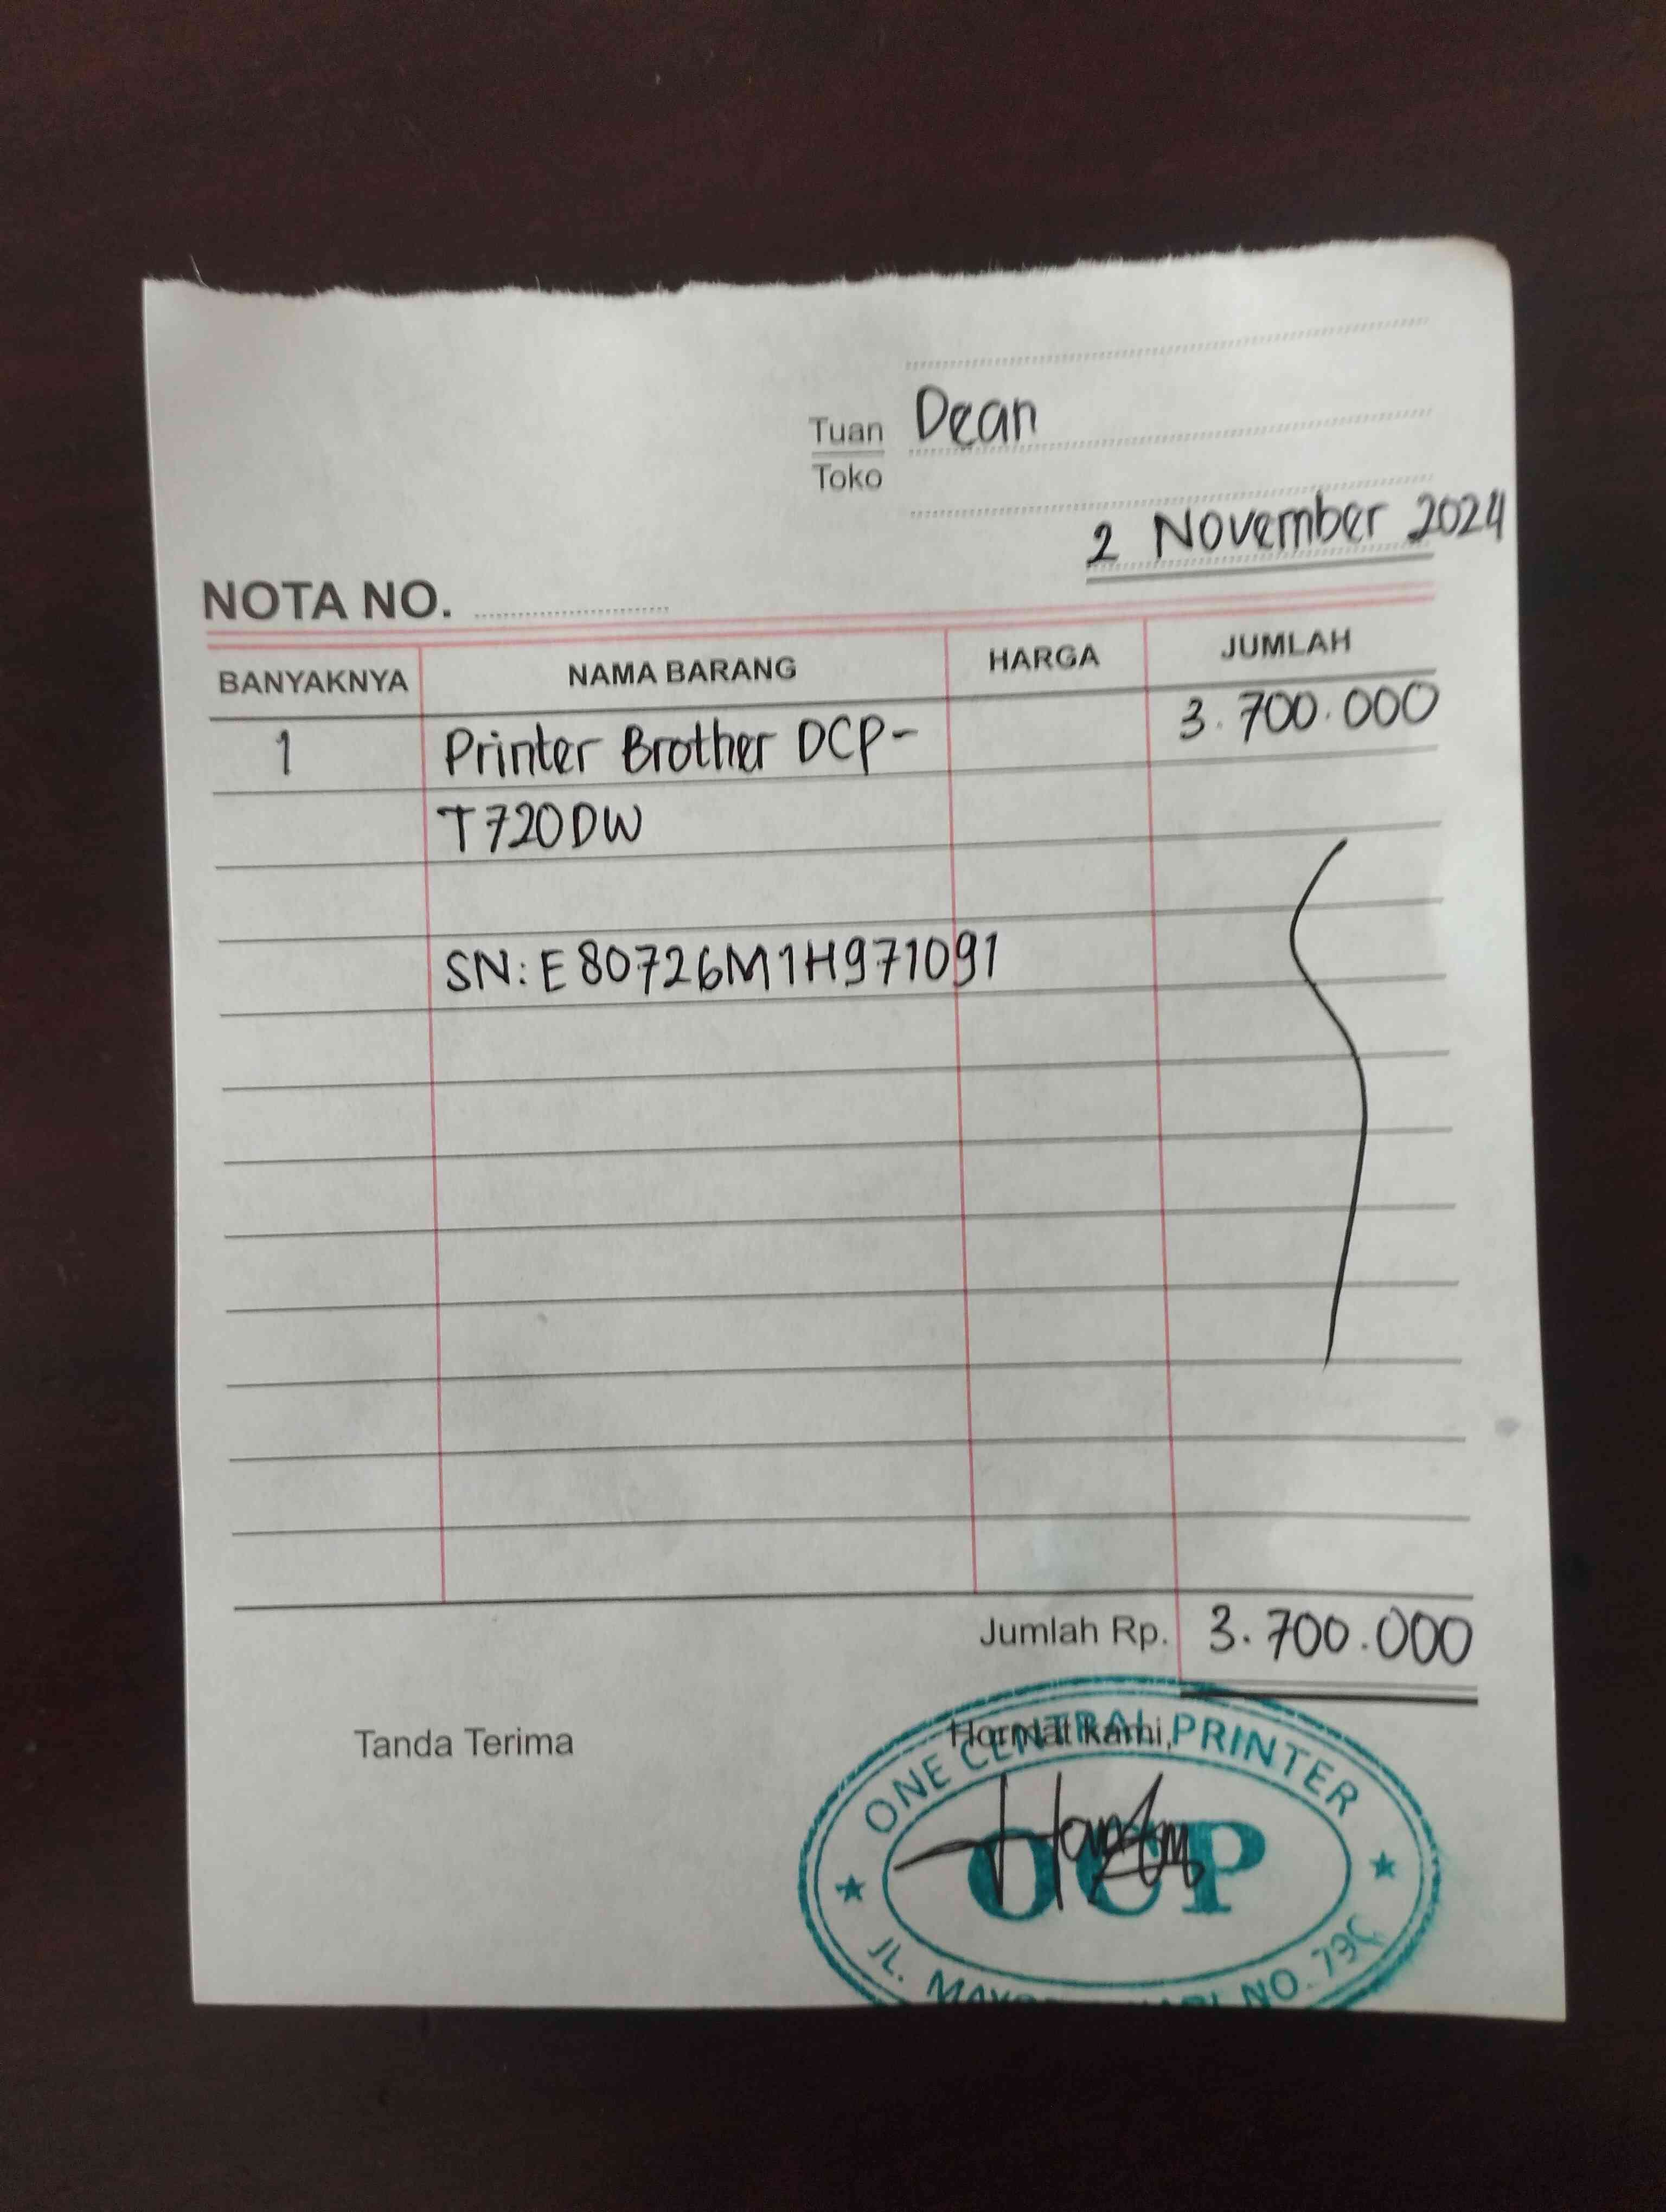 Tuan Dean
Toko
2 November 2024
NOTA NO.
BANYAKNYA NAMA BARANG HARGA JUMLAH
1 Printer Brother DCP- 3.700.000
T720DW
SN: E80726M1H971091
Jumlah Rp. 3.700.000
Tanda Terima Hormat kami,
ONE CENTRAL PRINTER
OCP
JL. NO. 79C